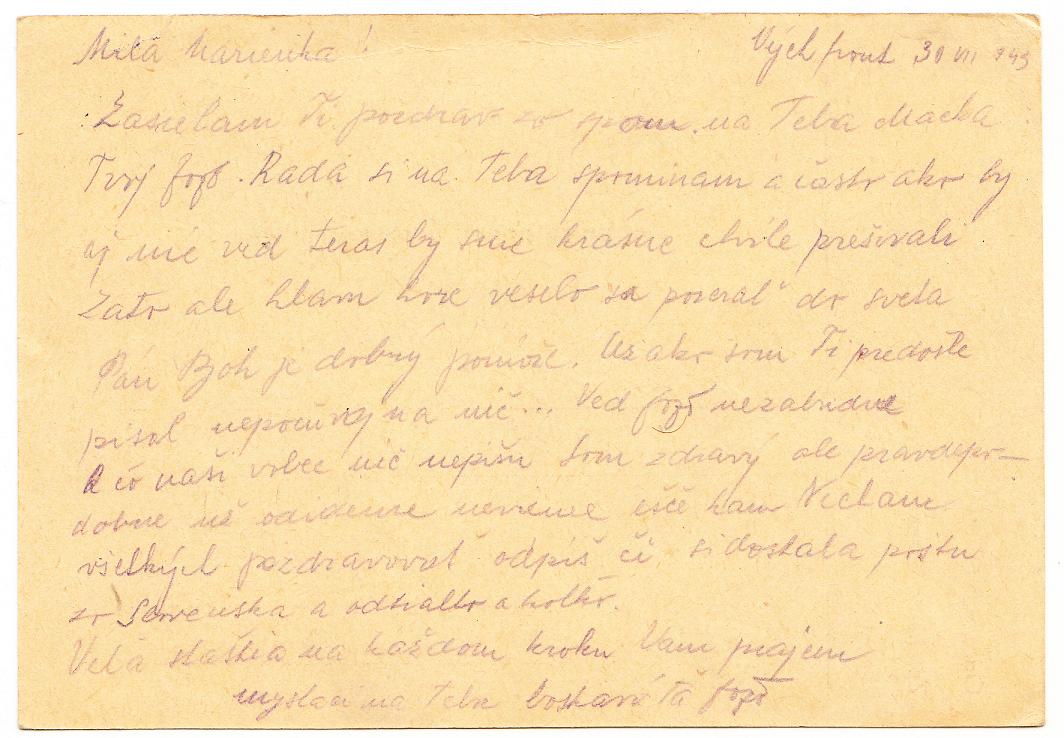 Milá Marienka! Vých front 30 VII 943
Zasielam Ti pozdrav zo spom. na Teba
Tvoj Jozo. Rada si na Teba spominam a často ako by
aj nié ved teras by sme krásne chvíle prešivali
Zato ale hlavu hore veselo sa pozerať do sveta
Pán Boh je dobrý pomože. Už ako som Ti predošle
pisal nepočúvaj na nič... Ved Jozo nezabudne
A čo naši vobec nič nepišu Som zdravý ale pravdepo-
dobne už odideme nevieme ešče kam Necham
všetkých pozdravovať odpíš či si dostala poštu
zo Slovenska a odtialto a kolko.
Vela štastia na každom kroku Vam prajem
mysliaci na Teba boskava Ťa Jozo